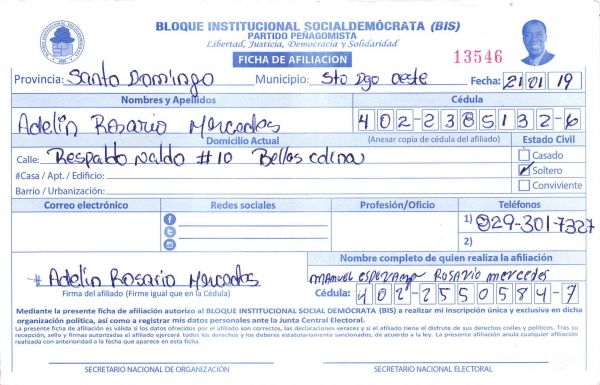 BLOQUE INSTITUCIONAL SOCIALDEMÓCRATA (BIS)
PARTIDO PEÑAGOMISTA
Libertad, Justicia, Democracia y Solidaridad
FICHA DE AFILIACION
13546
Provincia: Santo Domingo Municipio: Sto Dgo oeste Fecha: 21 01 19
Nombres y Apellidos Cédula
Adelin Rosario Mercedes 402-2385132-6
Domicilio Actual (Anexar copia de cédula del afiliado) Estado Civil
Calle: Respaldo #10 Bellas colina Casado
#Casa / Apt. / Edificio: Soltero
Barrio / Urbanización: Conviviente
Correo electrónico Redes sociales Profesión/Oficio Teléfonos
1) 829-301-7327
2)
Nombre completo de quien realiza la afiliación
Adelin Rosario Mercedes manuel esperanza Rosario mercedes
Firma del afiliado (Firme igual que en la Cédula) Cédula: 402-2550584-7
Mediante la presente ficha de afiliación autorizo al BLOQUE INSTITUCIONAL SOCIAL DEMÓCRATA (BIS) a realizar mi inscripción única y exclusiva en dicha
organización política, así como a registrar mis datos personales ante la Junta Central Electoral.
La presente ficha de afiliación es válida si los datos ofrecidos por el afiliado son correctos, las declaraciones veraces y si el afiliado tiene el disfrute de sus derechos civiles y políticos. Tras su
recepción, sello y firmas autorizadas el afiliado ejercerá todos los derechos y los deberes estatutariamente sancionados, de acuerdo a la ley. La presente afiliación anula cualquier afiliación
realizada con anterioridad a la fecha que aparece en esta ficha.
SECRETARIO NACIONAL DE ORGANIZACIÓN SECRETARIO NACIONAL ELECTORAL